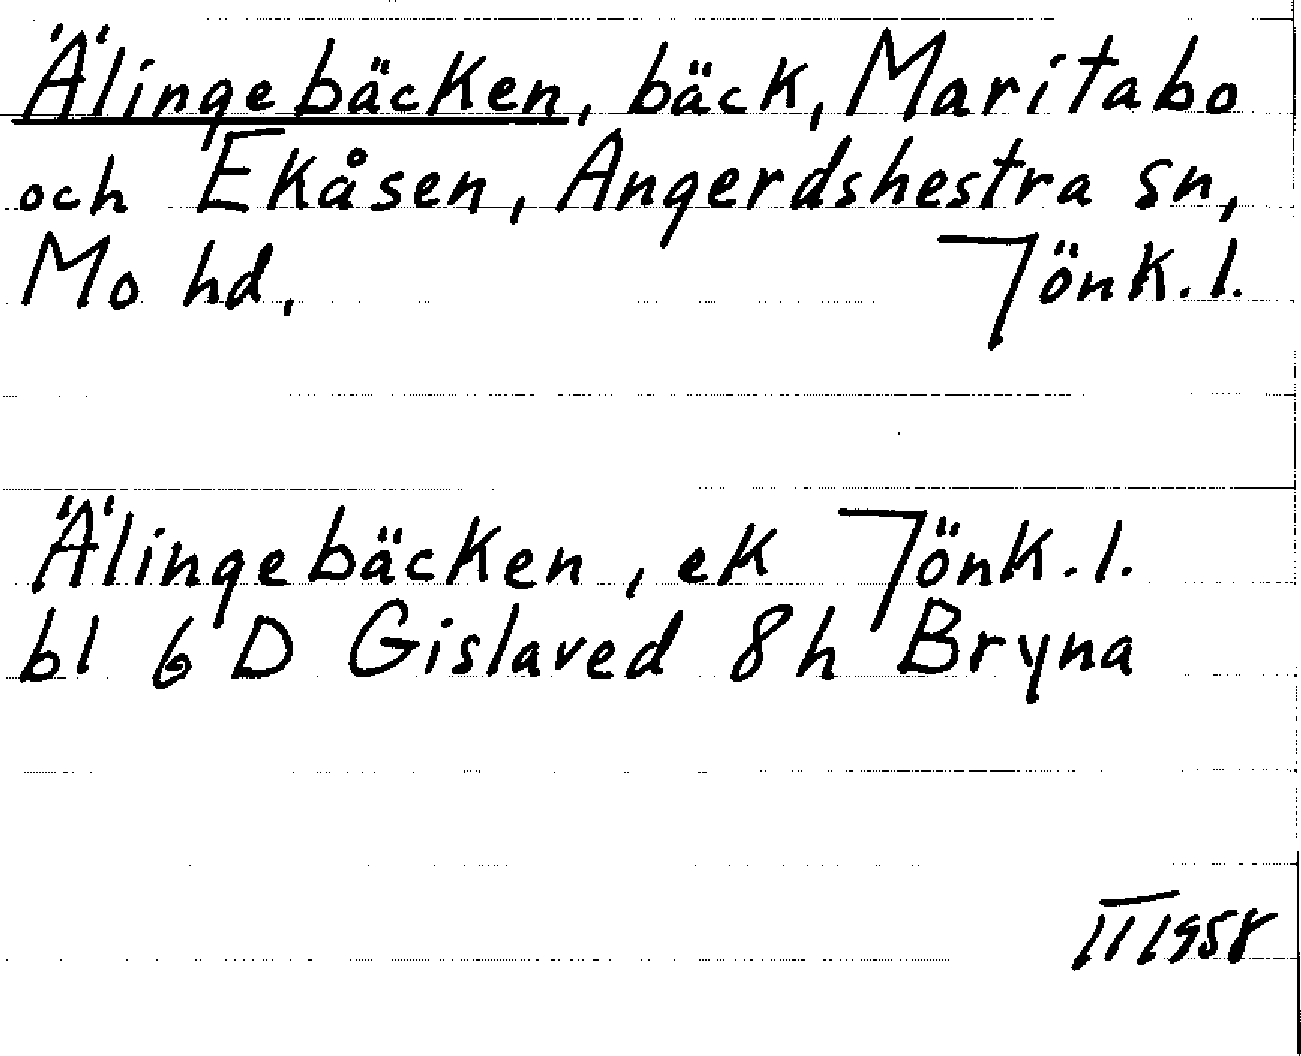 Älingebäcken, bäck, Maritabo
och Ekåsen, Angerdshestra sn,
Mo hd. Jönk.l.
Älingebäcken, ek Jönk.l.
bl 6 D Gislaved 8h Bryna
II 1958